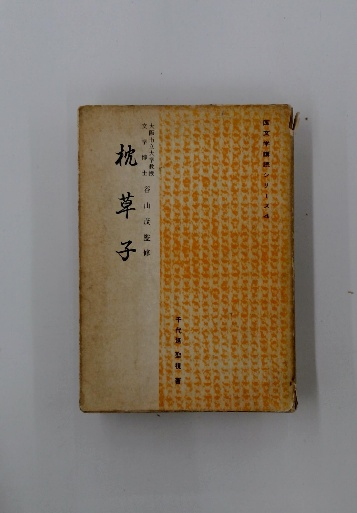 国文学解釈シリーズ
大阪市立大学教授
文学博士
谷山茂監修
枕草子
千代
著